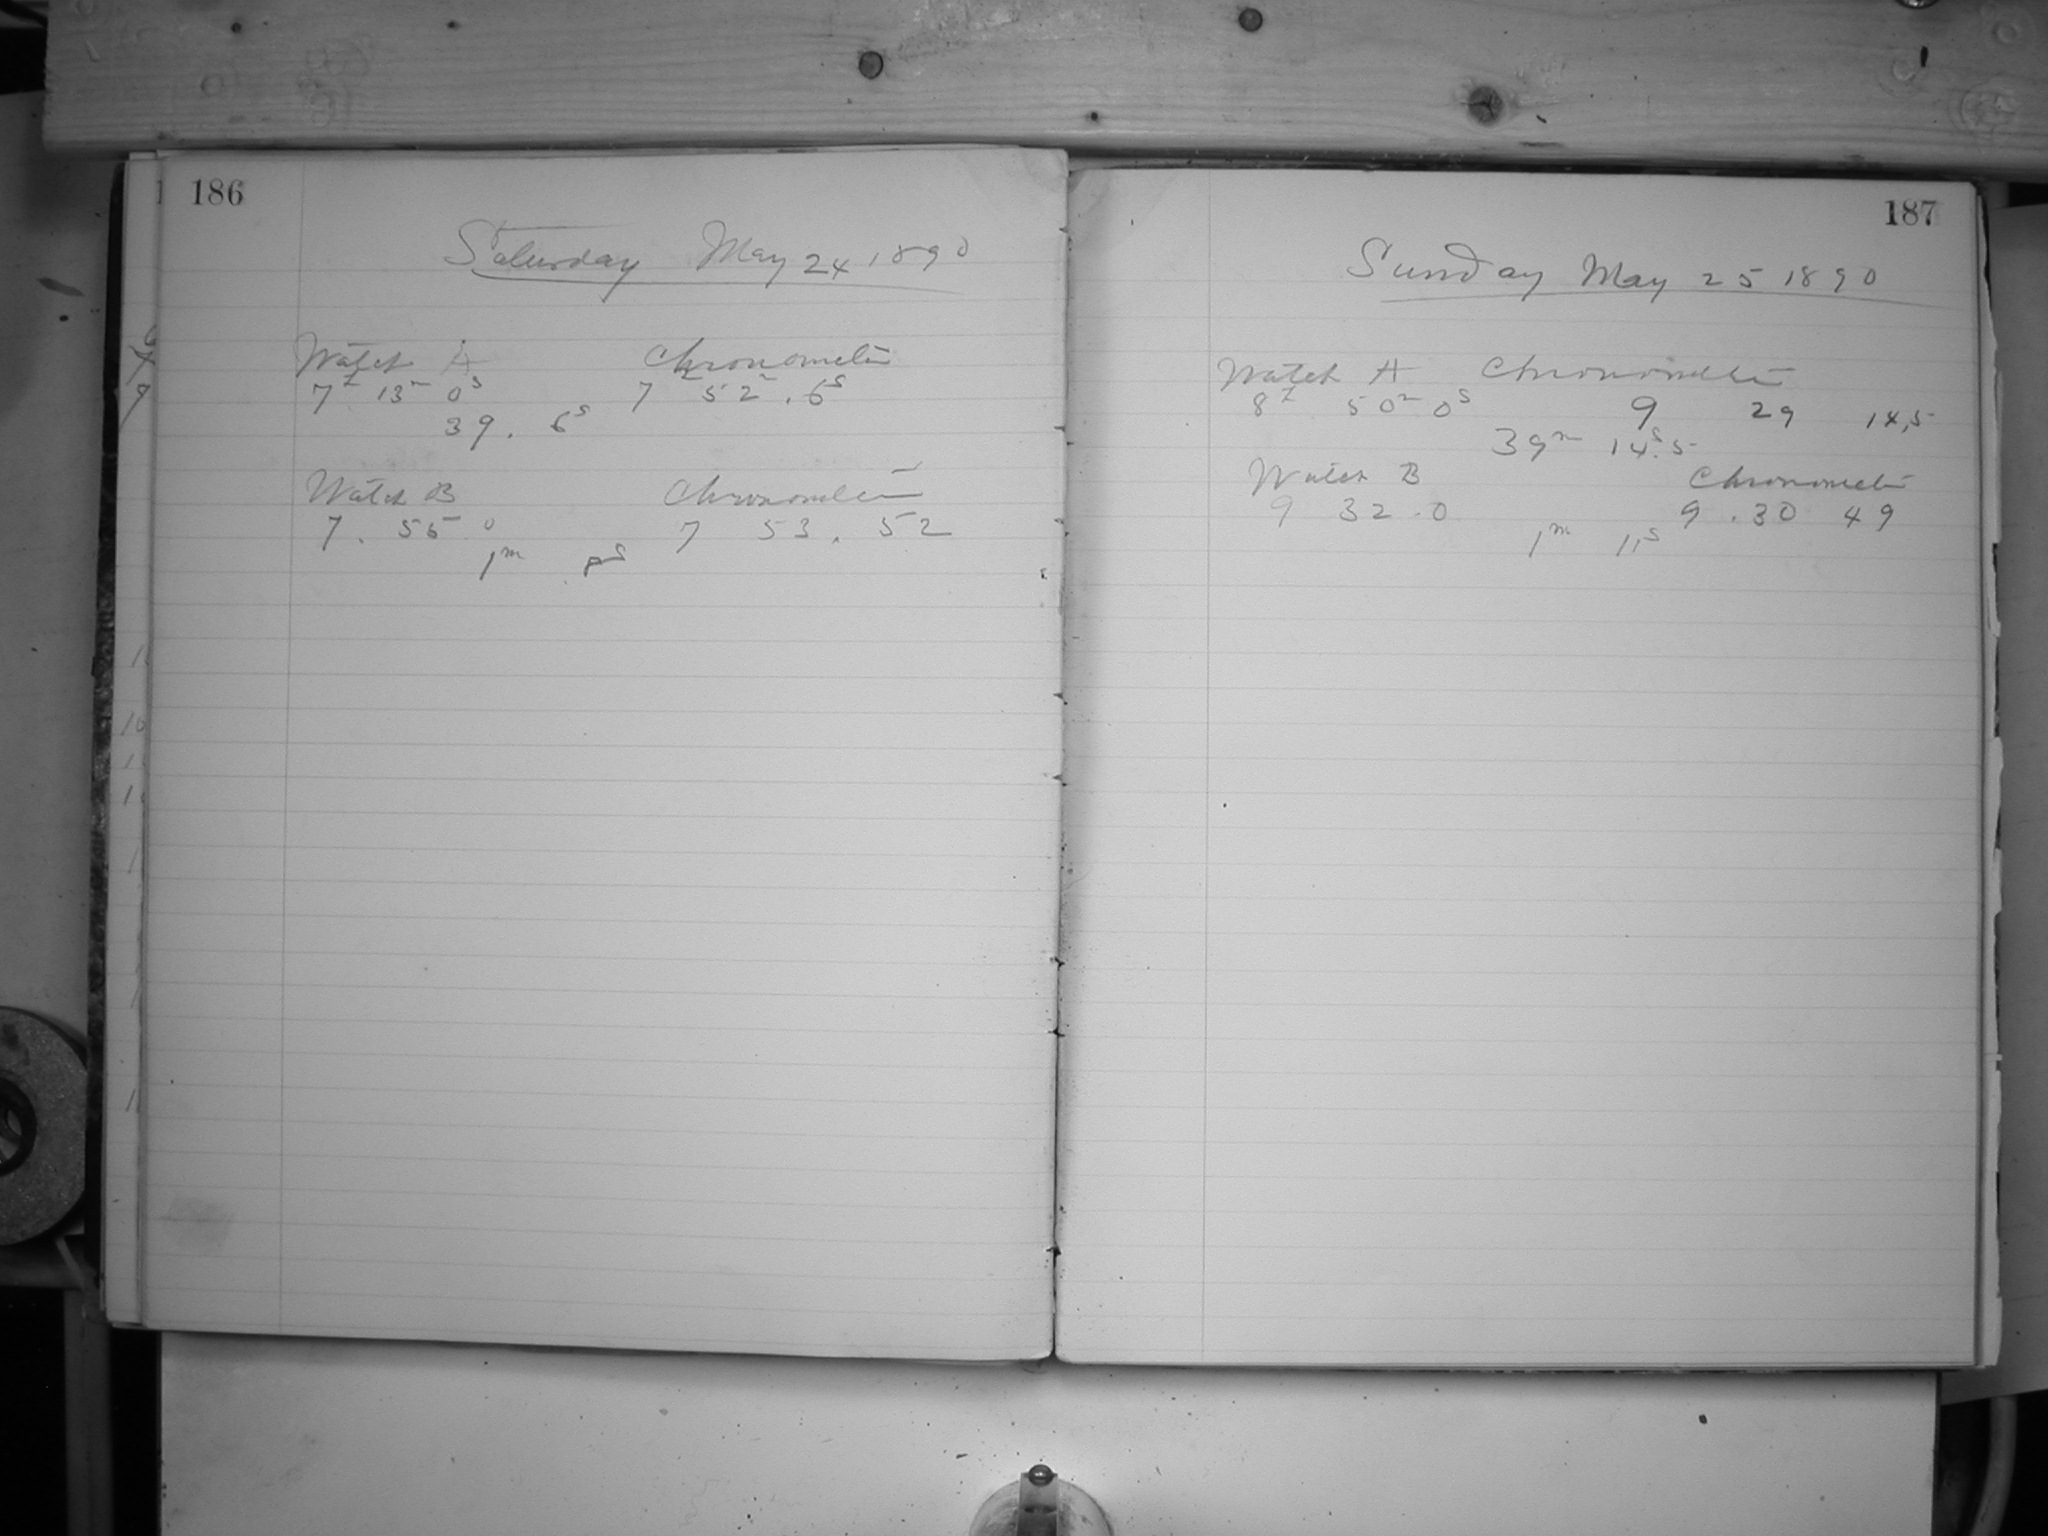 186
Saturday May 24 1890
Watch A Chronometer
7h 13m 0s 7h 52m . 6s
39 . 6s
Watch B Chronometer
7 . 55 0 7 53 . 52
1m 8s
187
Sunday May 25 1890
Watch A Chronometer
8h 50m 0s 9 29 14,5
39m 14s.5
Watch B Chronometer
9 32 . 0 9 . 30 49
1m 11s